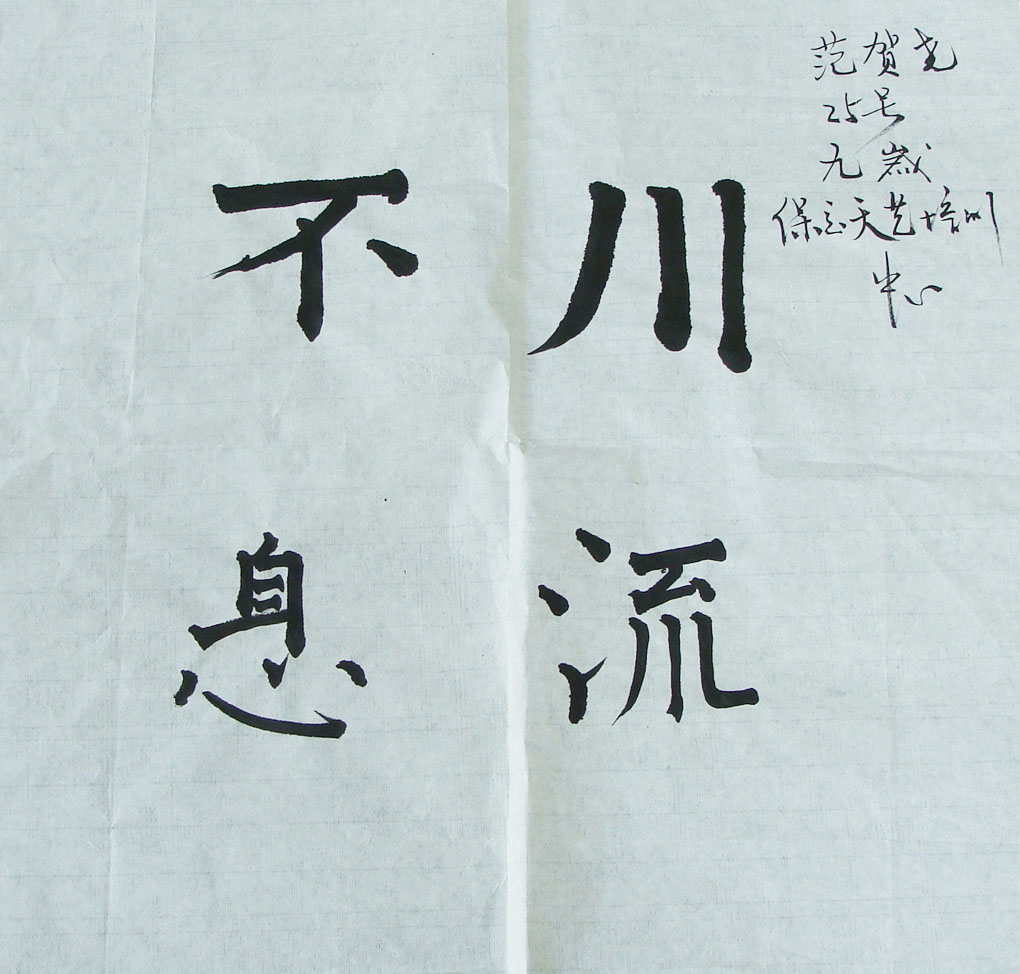 川流
不息
范贺尧
25号
九岁
保定天艺培训
中心